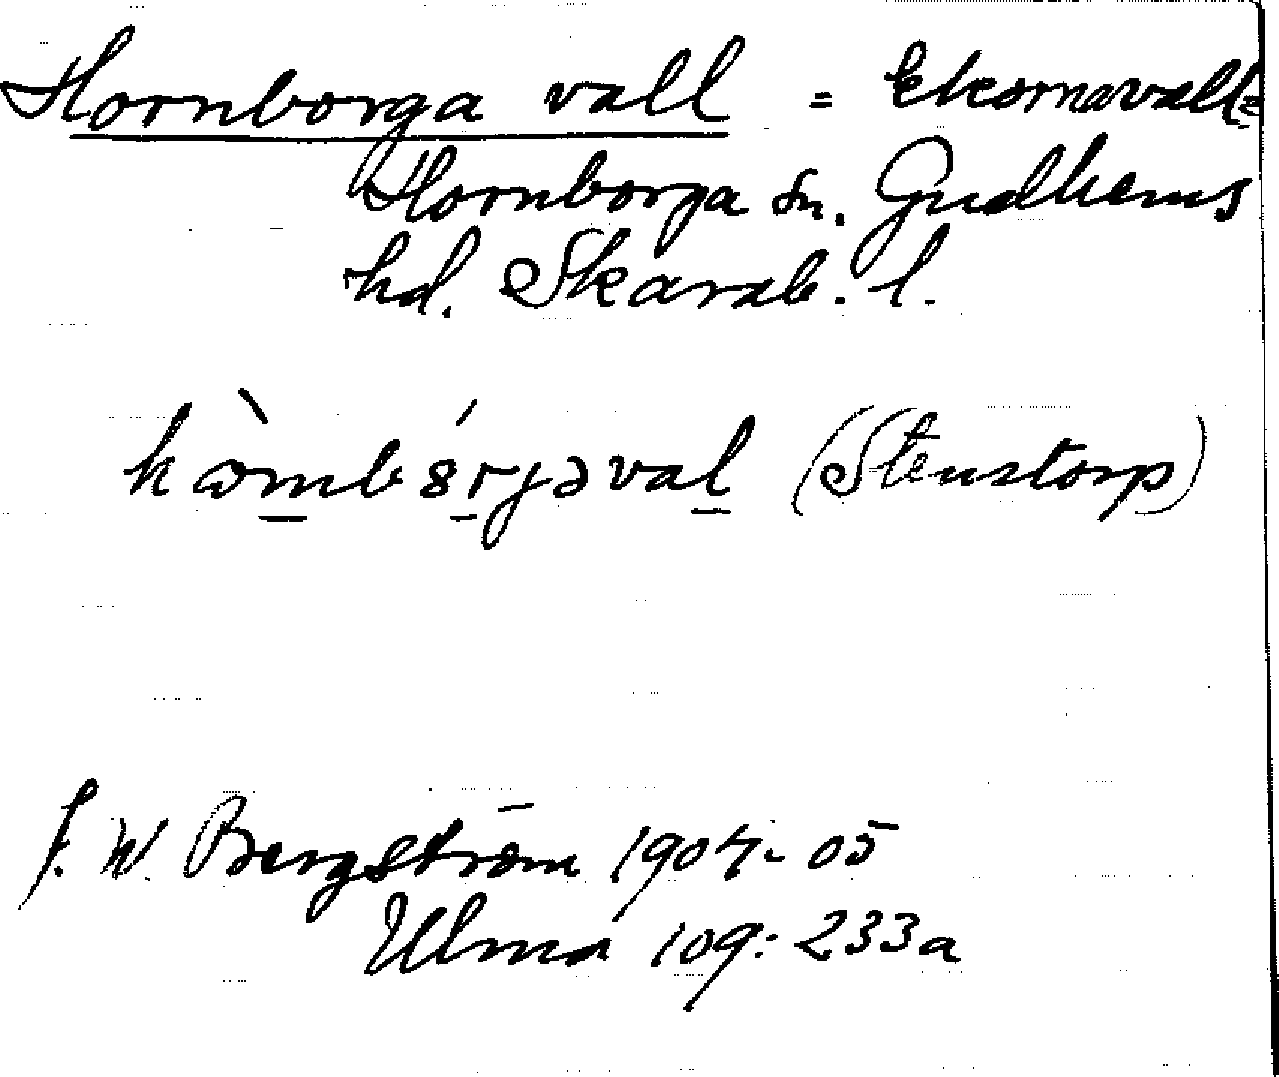 Hornborga vall = Ekornavalle
Hornborga sn. Gudhems
hd. Skarab. l.
(Stenstorp)
J. W. Bergström 1904-05
Ulma 109: 233a